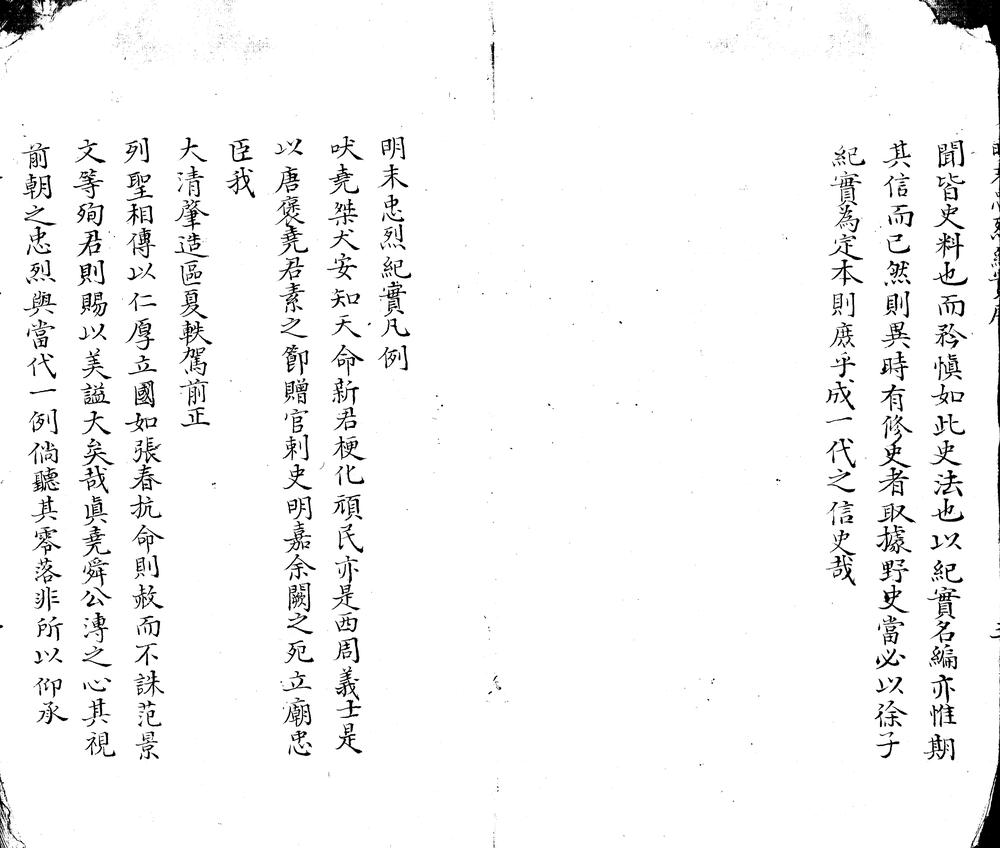 聞皆史料也而矜慎如此史法也以紀實名編亦惟期
其信而已然則異時有修史者取據野史當必以徐子
紀實為定本則庶乎成一代之信史哉
明末忠烈紀實凡例
吠堯桀犬安知天命新君梗化頑民亦是西周義士是
以唐褒堯君素之節贈官刺史明嘉余闕之死立廟忠
臣我
大清肇造區夏軼駕前正
列聖相傳以仁厚立國如張春抗命則赦而不誅范景
文等殉君則賜以美謚大矣哉眞堯舜公溥之心其視
前朝之忠烈與當代一例倘聽其零落非所以仰承